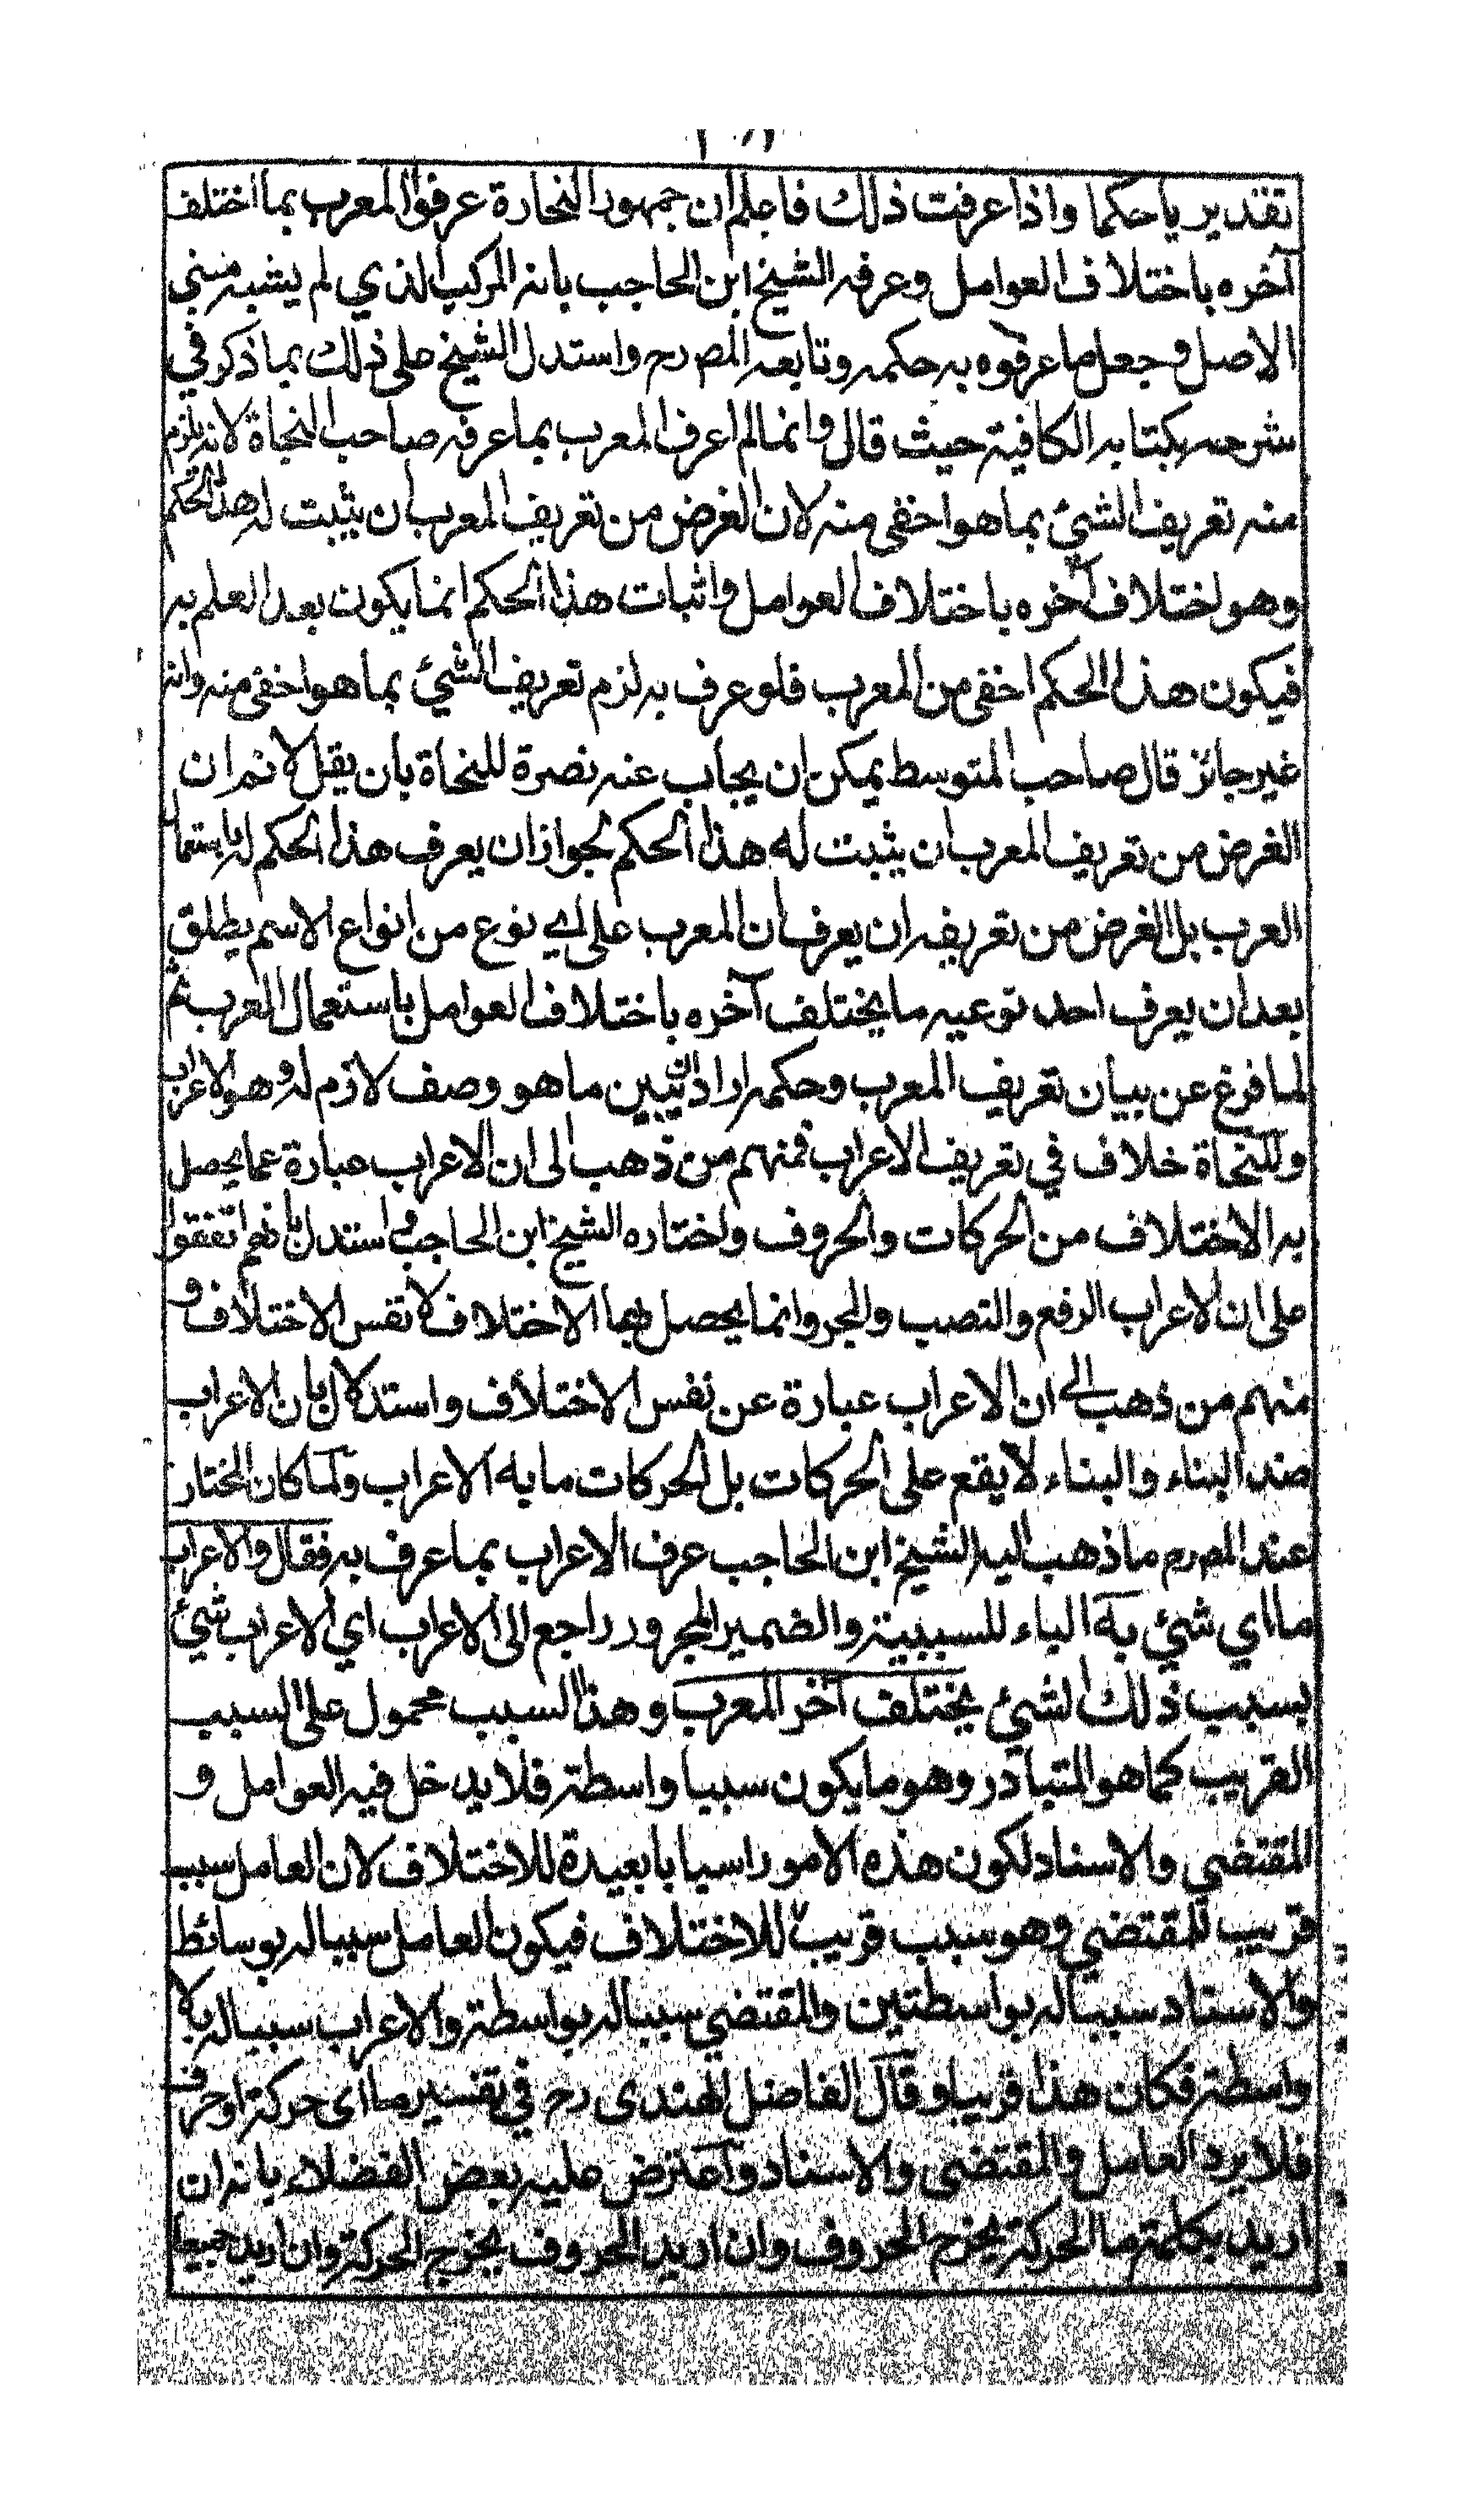 تقدير ياحكما واذا عرفت ذلك فاعلم ان جمهور النحارة عرفوا المعرب بما اختلف
آخره باختلاف العوامل وعرفه الشيخ ابن الحاجب بانه المركب الذي لم يشبه مبني
الاصل وجعل ما عرفوه به حكمه وتابعه المص رح واستدل الشيخ على ذلك بما ذكر في
شرحه بكتابه الكافية حيث قال وانما لم اعرف المعرب بما عرفه صاحب النحاة لانه يلزم
منه تعريف الشيئ بما هو اخفى منه لان الغرض من تعريف المعرب ان يثبت له هذا الحكم
وهو اختلاف آخره باختلاف العوامل واثبات هذا الحكم انما يكون بعد العلم به
فيكون هذا الحكم اخفى من المعرب فلو عرف به لزم تعريف الشيئ بما هو اخفى منه وانه
غير جائز قال صاحب المتوسط يمكن ان يجاب عنه نصرة للنحاة بان يقل لا نم ان
الغرض من تعريف المعرب ان يثبت له هذا الحكم لجواز ان يعرف هذا الحكم له باستعمال
العرب بل الغرض من تعريفه ان يعرف ان المعرب على اي نوع من انواع الاسم يطلق
بعد ان يعرف احد نوعيه ما يختلف آخره باختلاف العوامل باستعمال العرب ثم
لما فرغ عن بيان تعريف المعرب وحكمه اراد ان يبين ما هو وصف لازم له وهو الاعراب
وللنحاة خلاف في تعريف الاعراب فمنهم من ذهب الى ان الاعراب عبارة عما يحصل
به الاختلاف من الحركات والحروف واختاره الشيخ ابن الحاجب واستدل بانهم اتفقوا
على ان الاعراب الرفع والنصب والجر وانما يحصل بها الاختلاف لا نفس الاختلاف و
منهم من ذهب الى ان الاعراب عبارة عن نفس الاختلاف واستدلال بان الاعراب
ضد البناء والبناء لا يقع على الحركات بل الحركات ما به الاعراب ولما كان المختار
عند المص رح ما ذهب اليه الشيخ ابن الحاجب عرف الاعراب بما عرف به فقال والاعراب
ما اي شيئ به الباء للسببية والضمير المجرور راجع الى الاعراب اي الاعراب شيئ
بسبب ذلك الشيئ يختلف آخر المعرب وهذا السبب محمول على السبب
القريب كما هو المتبادر وهو ما يكون سببا واسطة فلا يدخل فيه العوامل و
المقتضي والاسناد لكون هذه الامور اسبابا بعيدة للاختلاف لان العامل سبب
قريب للمقتضي وهو سبب قريب للاختلاف فيكون العامل سببا له بوسائط
والاسناد سببا له بواسطتين والمقتضي سببا له بواسطة والاعراب سببا له بلا
واسطة فكان هذا قريبا وقال الفاضل الهندى رح في تفسير ما اى حركة او حرف
فلا يرد العامل والمقتضى والاسناد واعترض عليه بعض الفضلاء بانه ان
اريد بكلمة ما الحركة يخرج الحروف وان اريد الحروف يخرج الحركة وان اريد جميعا